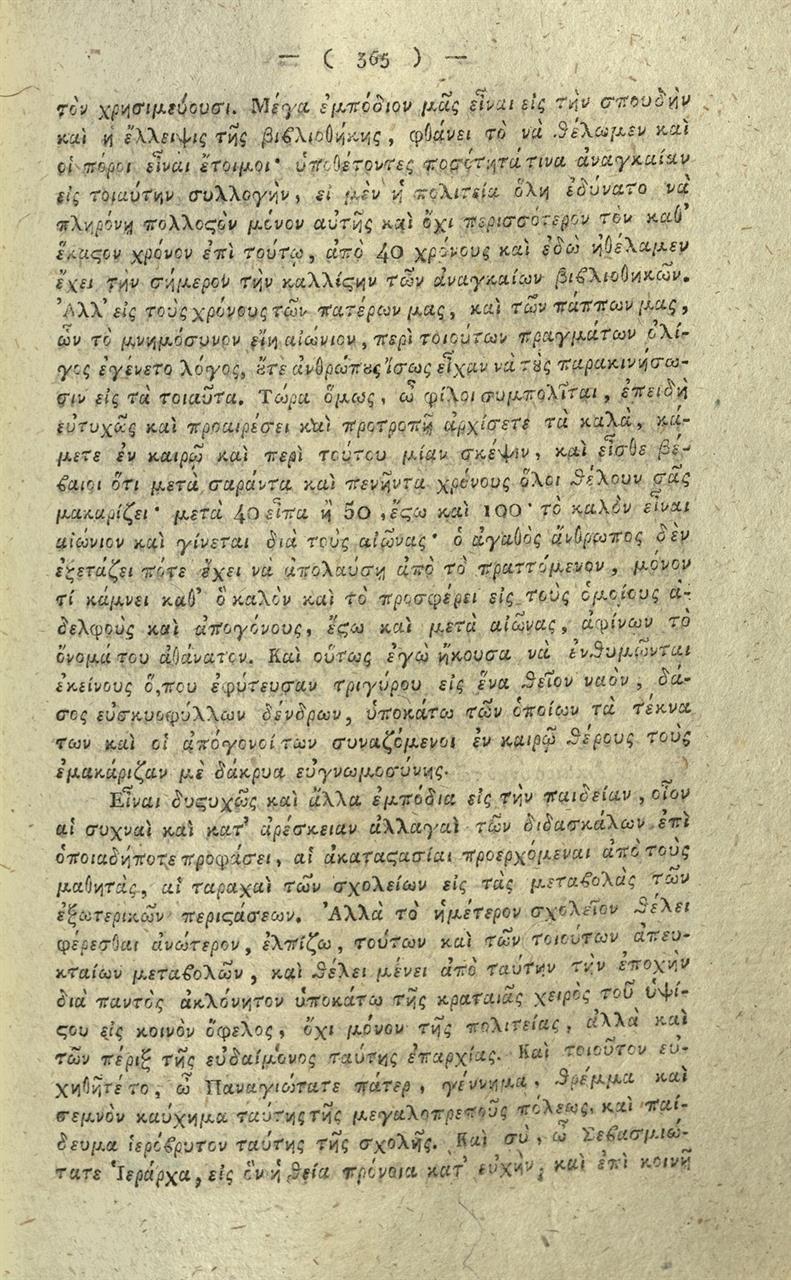 — ( 365 ) —
τὸν χρησιμεύουσι. Μέγα ἐμπόδιον μᾶς εἶναι εἰς τὴν σπουδὴν
καὶ ἡ ἔλλειψις τῆς βιβλιοθήκης, φθάνει τὸ νὰ θέλωμεν καὶ
οἱ πόροι εἶναι ἕτοιμοι· ὑποθέτοντες ποσότητά τινα ἀναγκαίαν
εἰς τοιαύτην συλλογὴν, εἰ μὲν ἡ πολιτεία ὅλη ἐδύνατο νὰ
πληρόνῃ πολλοϛὸν μόνον αὐτῆς καὶ ὄχι περισσότερον τὸν καθ'
ἕκαϛον χρόνον ἐπὶ τούτῳ, ἀπὸ 40 χρόνους καὶ ἐδῶ ἠθέλαμεν
ἔχει τὴν σήμερον τὴν καλλίϛην τῶν ἀναγκαίων βιβλιοθηκῶν.
Ἀλλ' εἰς τοὺς χρόνους τῶν πατέρων μας, καὶ τῶν πάππων μας,
ὧν τὸ μνημόσυνον εἴη αἰώνιον, περὶ τοιούτων πραγμάτων ὀλί-
γος ἐγένετο λόγος, ȣ̓τε ἀνθρώπȣς ἴσως εἶχαν νὰ τȣ̀ς παρακινήσω-
σιν εἰς τὰ τοιαῦτα. Τώρα ὅμως, ὦ φίλοι συμπολῖται, ἐπειδὴ
εὐτυχῶς καὶ προαιρέσει καὶ προτροπῇ ἀρχίσετε τὰ καλὰ, κά-
μετε ἐν καιρῷ καὶ περὶ τούτου μίαν σκέψιν, καὶ εἶσθε βέ-
βαιοι ὅτι μετὰ σαράντα καὶ πενῆντα χρόνους ὅλοι θέλουν σᾶς
μακαρίζει· μετὰ 40 εἶπα ἢ 50, ἔϛω καὶ 100· τὸ καλὸν εἶναι
αἰώνιον καὶ γίνεται διὰ τοὺς αἰῶνας· ὁ ἀγαθὸς ἄνθρωπος δὲν
ἐξετάζει πότε ἔχει νὰ ἀπολαύσῃ ἀπὸ τὸ πραττόμενον, μόνον
τί κάμνει καθ' ὃ καλὸν καὶ τὸ προσφέρει εἰς τοὺς ὁμοίους ἀ-
δελφοὺς καὶ ἀπογόνους, ἔϛω καὶ μετὰ αἰῶνας, ἀφίνων τὸ
ὄνομά του ἀθάνατον. Καὶ οὕτως ἐγὼ ἤκουσα νὰ ἐνθυμῶνται
ἐκείνους ὅ,που ἐφύτευσαν τριγύρου εἰς ἕνα θεῖον ναὸν, δά-
σος εὐσκυοφύλλων δένδρων, ὑποκάτω τῶν ὁποίων τὰ τέκνα
των καὶ οἱ ἀπόγονοί των συναζόμενοι ἐν καιρῷ θέρους τοὺς
ἐμακάριζαν μὲ δάκρυα εὐγνωμοσύνης.
Εἶναι δυϛυχῶς καὶ ἄλλα ἐμπόδια εἰς τὴν παιδείαν, οἷον
αἱ συχναὶ καὶ κατ' ἀρέσκειαν ἀλλαγαὶ τῶν διδασκάλων ἐπὶ
ὁποιαδήποτε προφάσει, αἱ ἀκαταϛασίαι προερχόμεναι ἀπὸ τοὺς
μαθητὰς, αἱ ταραχαὶ τῶν σχολείων εἰς τὰς μεταβολὰς τῶν
ἐξωτερικῶν περιϛάσεων. Ἀλλὰ τὸ ἡμέτερον σχολεῖον θέλει
φέρεσθαι ἀνώτερον, ἐλπίζω, τούτων καὶ τῶν τοιούτων ἀπευ-
κταίων μεταβολῶν, καὶ θέλει μένει ἀπὸ ταύτην τὴν ἐποχὴν
διὰ παντὸς ἀκλόνητον ὑποκάτω τῆς κραταιᾶς χειρὸς τοῦ ὑψί-
ϛου εἰς κοινὸν ὄφελος, ὄχι μόνον τῆς πολιτείας, ἀλλὰ καὶ
τῶν πέριξ τῆς εὐδαίμονος ταύτης ἐπαρχίας. Καὶ τοιοῦτον εὐ-
χηθῆτέ το, ὦ Παναγιώτατε πάτερ, γέννημα, θρέμμα καὶ
σεμνὸν καύχημα ταύτης τῆς μεγαλοπρεποῦς πόλεως, καὶ παί-
δευμα ἱερόβρυτον ταύτης τῆς σχολῆς. Καὶ σὺ, ὦ Σεβασμιώ-
τατε Ἱεράρχα, εἰς ὃν ἡ θεία πρόνοια κατ' εὐχὴν, καὶ ἐπὶ κοινῇ